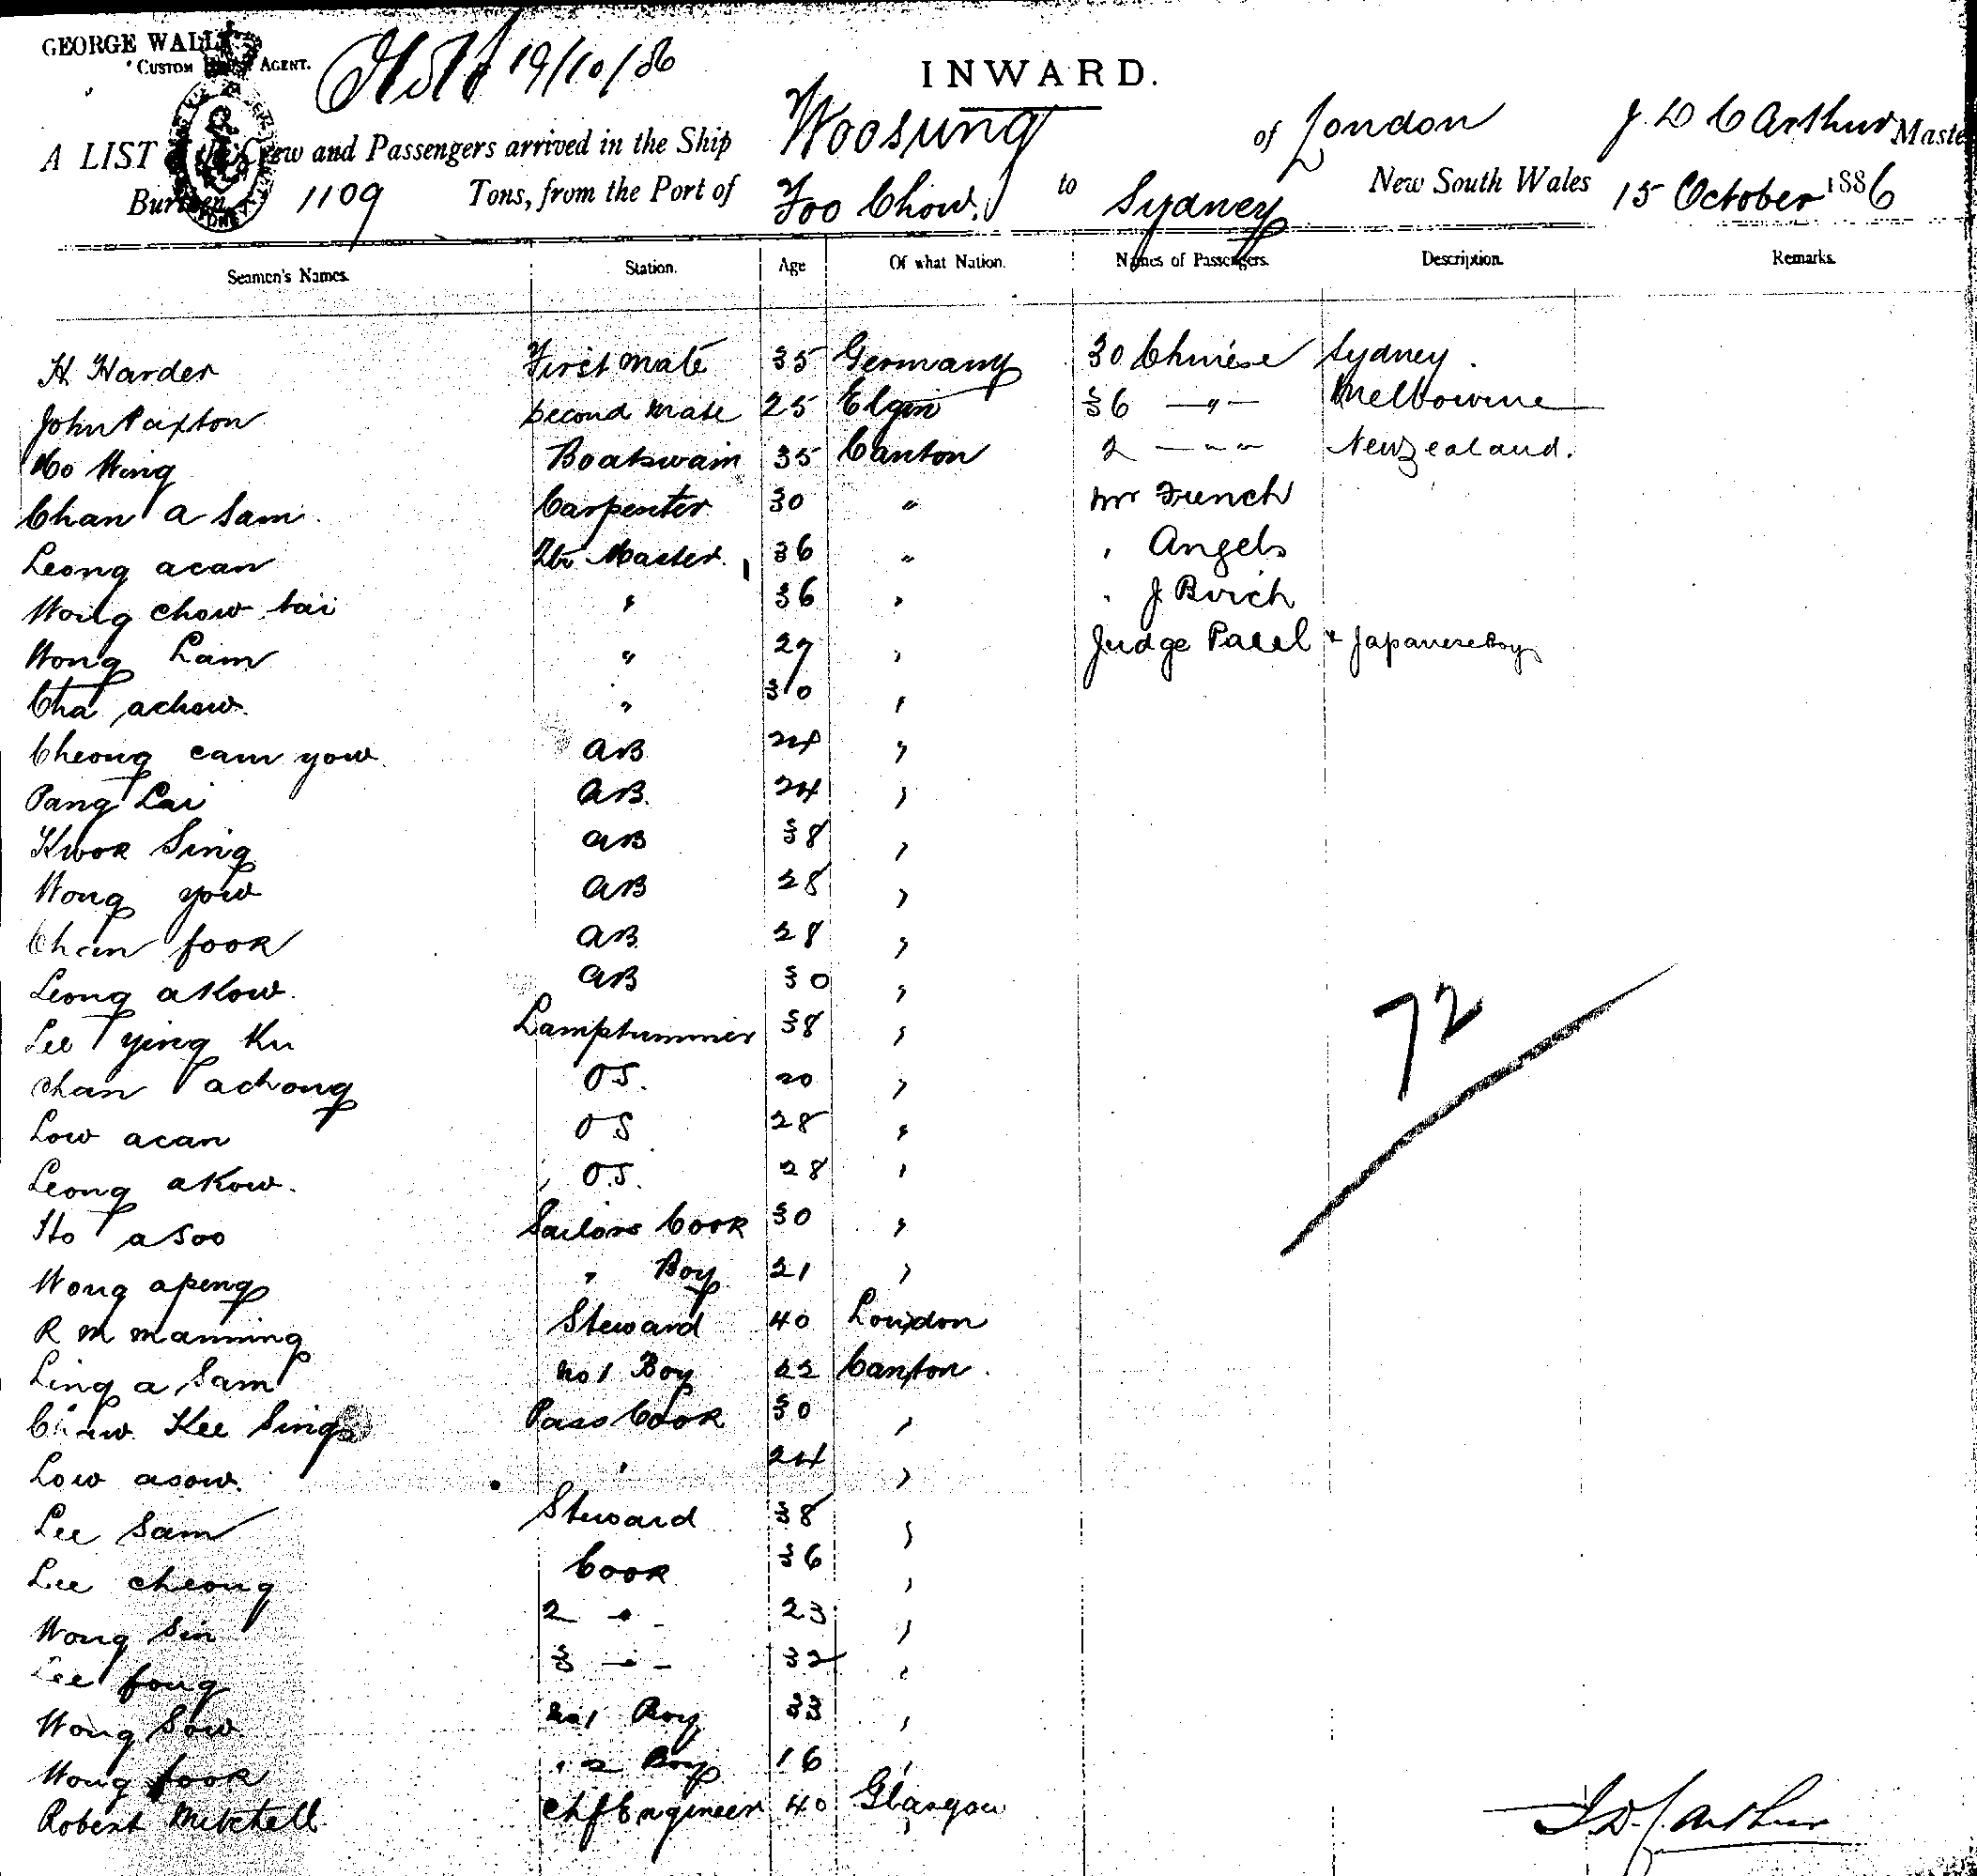 GEORGE WALL
CUSTOM HOUSE AGENT.
19/10/86
INWARD.
A LIST of the Crew and Passengers arrived in the Ship Woosung of London J. D C Arthur Master
Burthen 1109 Tons, from the Port of Foo Chow. to Sydney New South Wales 15 October 1886
Seamen's Names. Station. Age Of what Nation. Names of Passengers. Description. Remarks.
H Harder First Mate 35 Germany 30 Chinese Sydney.
John Paxton Second Mate 25 Elgin 36 —〃— Melbourne
Ho Wing Boatswain 35 Canton 2 —〃— New Zealand.
Chan a Sam Carpenter 30 〃 Mr French
Leong acan Master. 36 〃 , Angels
Wong chow tai 〃 36 〃 〃 J Birch
Wong Lam 〃 29 〃 Judge + Japanese Boy
Cha achow. 〃 30 〃
Cheong cam yow AB 24 〃
Pang Lai AB. 24 〃
Kwok Sing AB 38 〃
Wong yow AB 28 〃
Chan fook AB 28 〃
Leong akow. AB 30 〃
Lee ying Ku Lamptrimmer 38 〃
Chan achong OS. 20 〃
Low acan OS 28 〃
Leong akow. O.S. 28 〃
Ho a Soo Sailors Cook 30 〃
Wong apeng 〃 Boy 21 〃
R M Manning Steward 40 London
Ling a Sam No 1 Boy 22 Canton.
Kee Sing Pass Cook 30 〃
Low asow. 〃 24 〃
Lee Sam Steward 38 〃
Lee Cheong Cook 36 〃
Wong Sin 2 〃 23 〃
Lee fong 3 —〃— 32 〃
Wong Sow No 1 Boy 33 〃
Wong fook 〃 2 Boy 16 〃
Robert Mitchell Chf Engineer 40 Glasgow
72
J D C Arthur